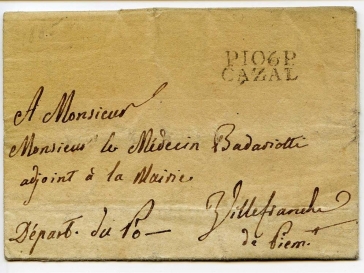 P106P
CAZAL
A Monsieur
Monsieur le Médecin Badariotti
adjoint à la Mairie
Villefranche
Départ. du Pô
de Piémt